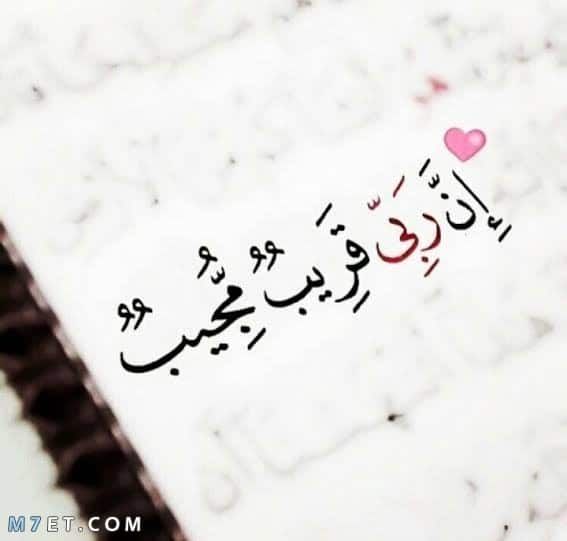 إِنَّ رَبِّىَّ قَرِيبٌ مُّجِيبٌ
M7ET.COM